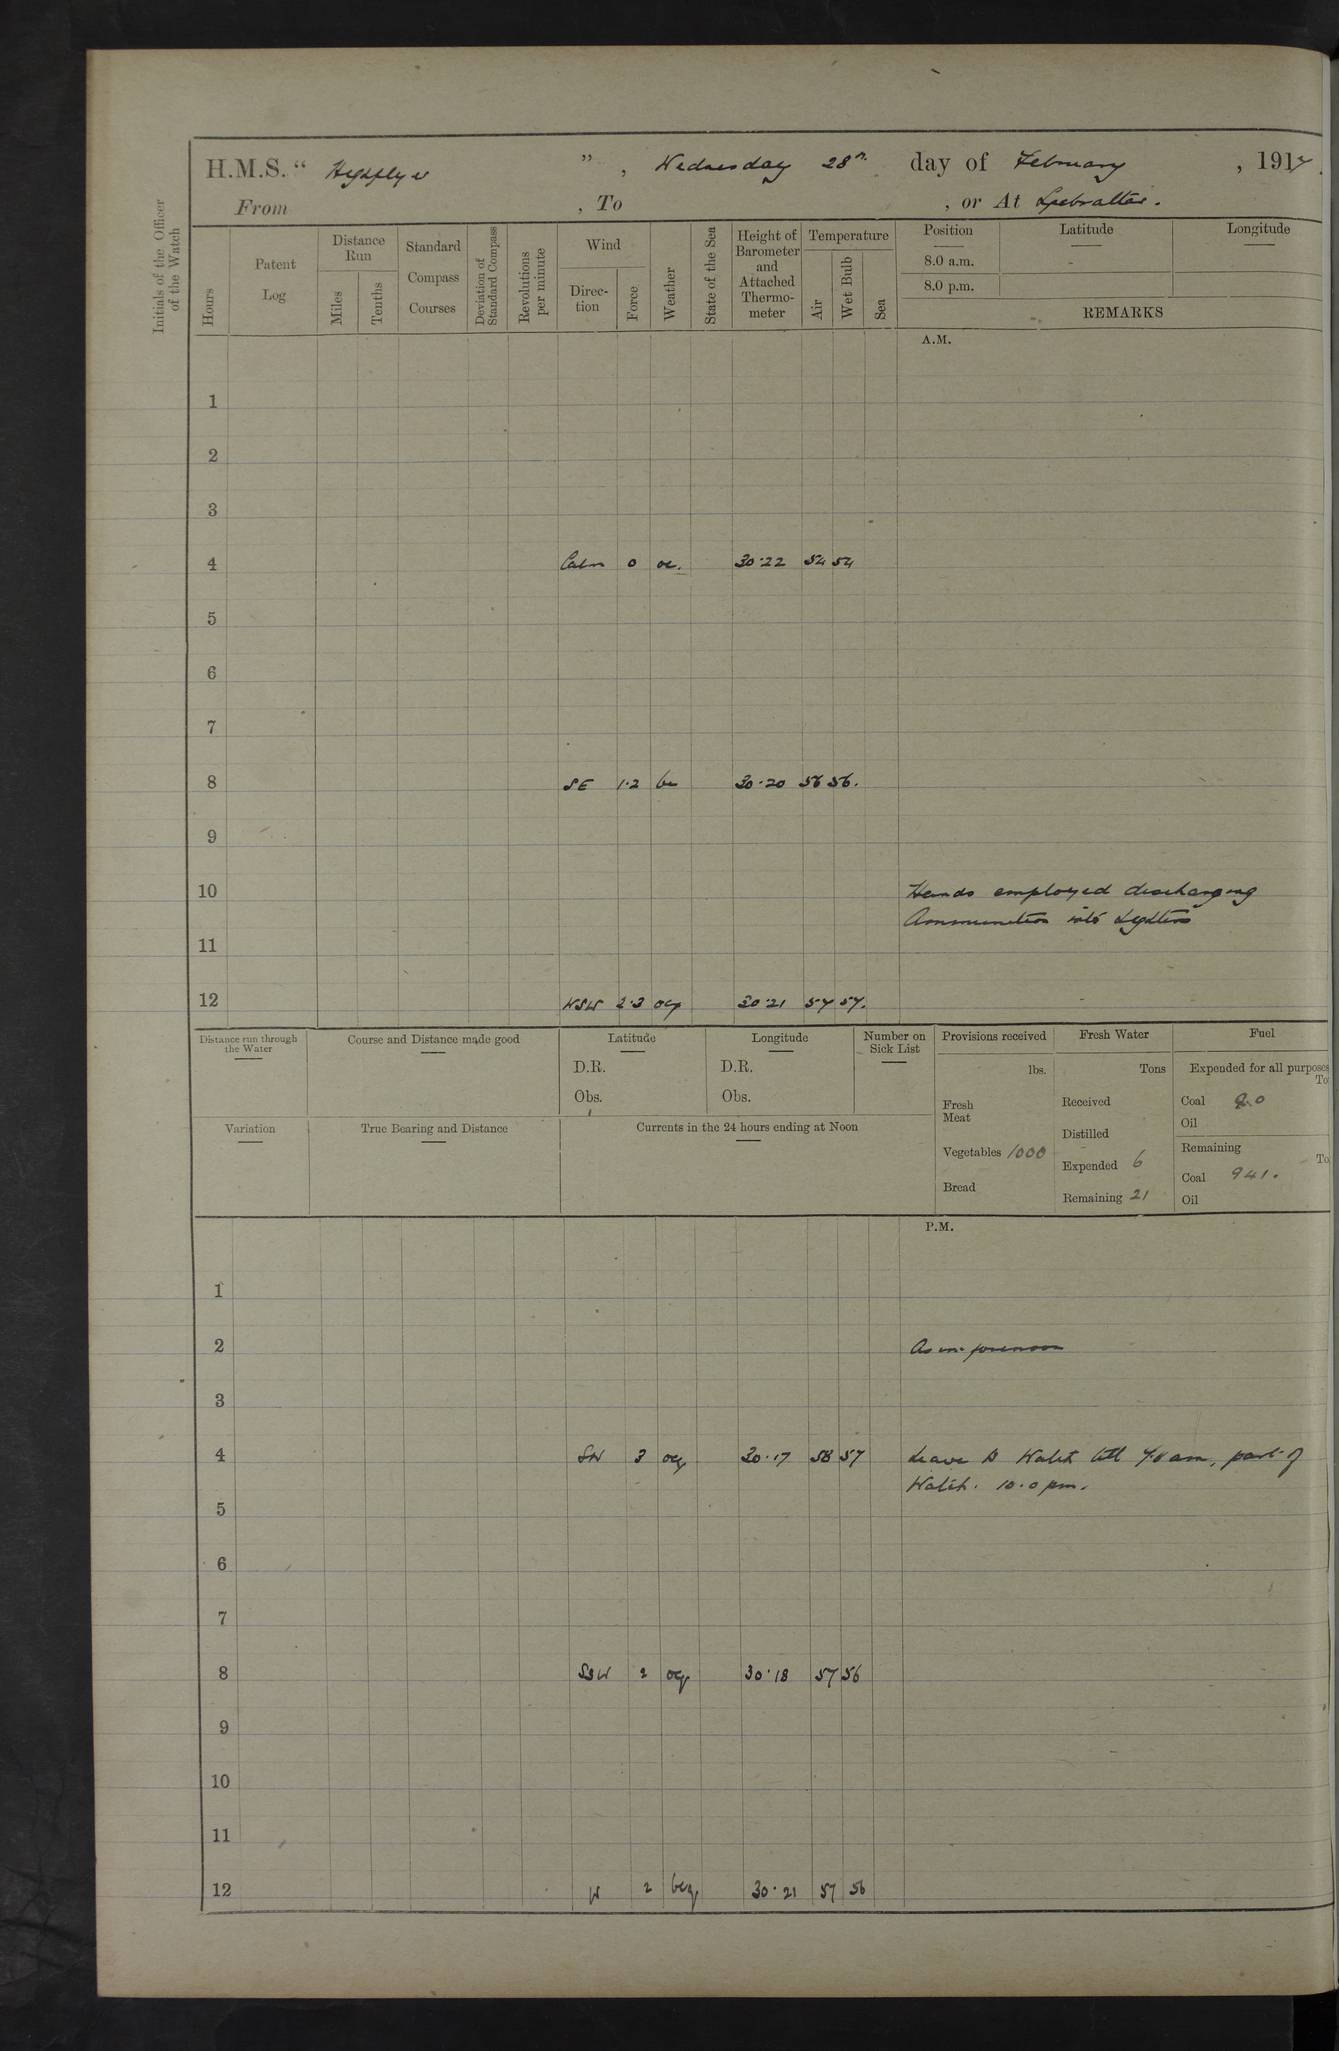 H.M.S. “ Highflyer ” , Wednesday 28th day of February , 1917 .
From , To , or At Gibraltar.
Initials of the Officer
of the Watch
Hours
Patent
Log
Distance
Run
Miles
Tenths
Standard
Compass
Courses
Deviation of
Standard Compass
Revolutions
per minute
Wind
Direc-
tion
Force
Weather
State of the Sea
Height of
Barometer
and
Attached
Thermo-
meter
Temperature
Air
Wet Bulb
Sea
Position Latitude Longitude
8.0 a.m.
8.0 p.m.
REMARKS
A.M.
1
2
3
4 Calm 0 oc. 30·22 54 54
5
6
7
8 SE 1·2 bc 30·20 56 56.
9
10 Hands employed discharging
Ammunition into Lighters
11
12 WSW 2·3 ocq 30·21 57 57.
Distance run through
the Water
Course and Distance made good
Latitude
D.R.
Obs.
Longitude
D.R.
Obs.
Number on
Sick List
Provisions received
lbs.
Fresh
Meat
Vegetables 1000
Bread
Fresh Water
Tons
Received
Distilled
Expended 6
Remaining 21
Fuel
Expended for all purposes
To
Coal 2.0
Oil
Remaining
To
Coal 941.
Oil
Variation
True Bearing and Distance
Currents in the 24 hours ending at Noon
P.M.
1
2 As in forenoon
3
4 SW 3 ocq 30·17 58 57 Leave to Watch till 7.0 am, part of
Watch. 10.0 pm.
5
6
7
8 SSW 2 ocq 30·18 57 56
9
10
11
12 W 2 bcq 30·21 57 56